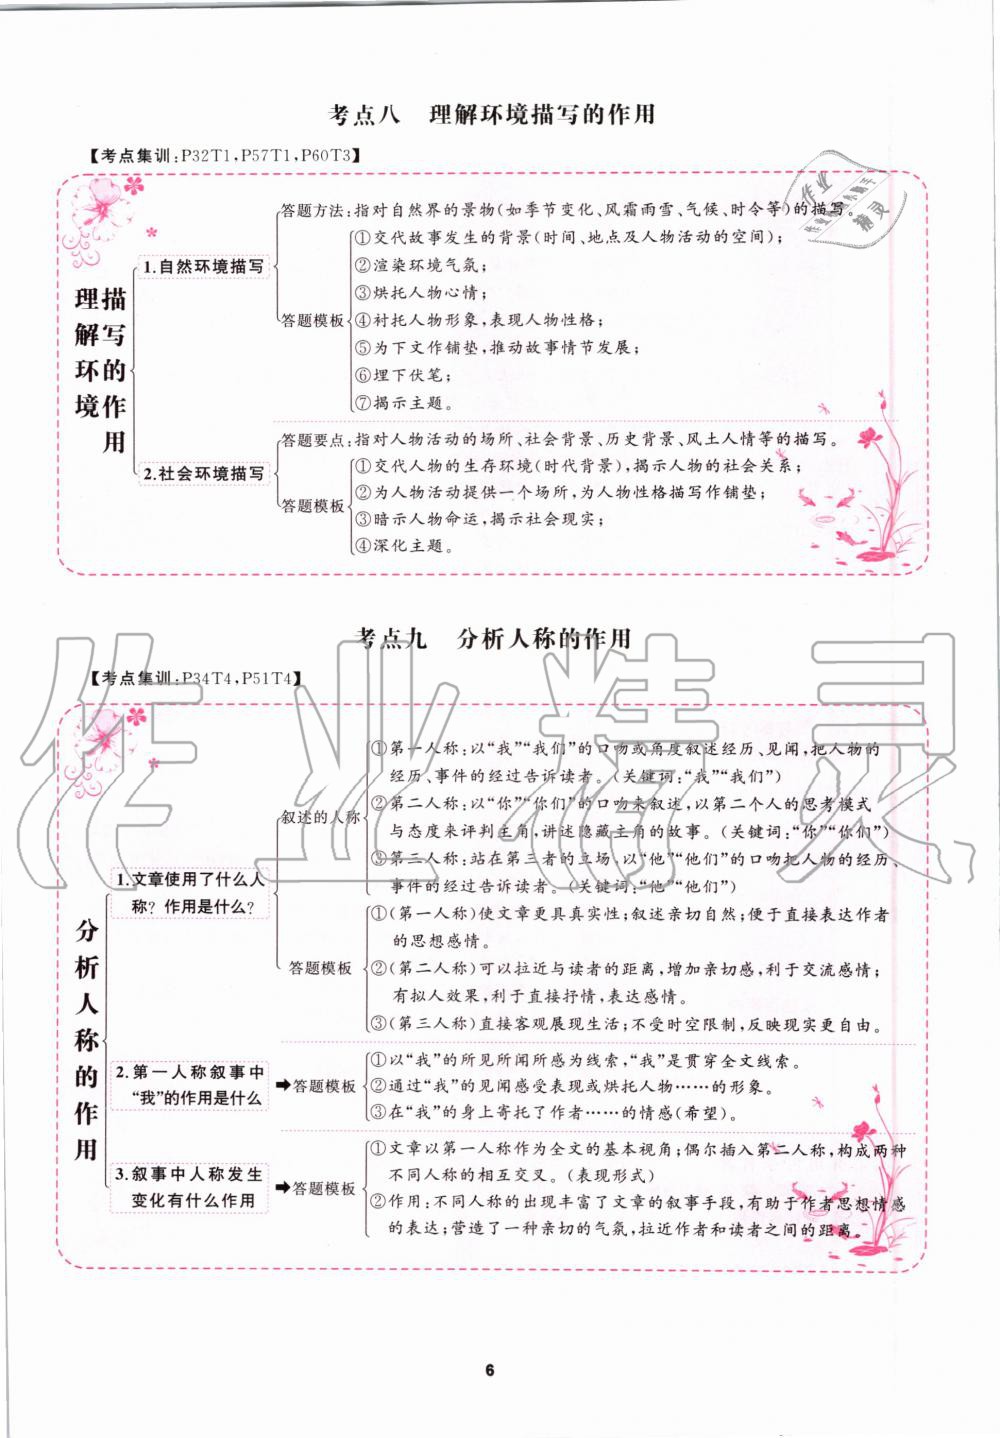 考点八　理解环境描写的作用
【考点集训:P32T1,P57T1,P60T3】
理解环境
描写的作用
1.自然环境描写
答题方法:指对自然界的景物(如季节变化、风霜雨雪、气候、时令等)的描写。
答题模板
①交代故事发生的背景(时间、地点及人物活动的空间);
②渲染环境气氛;
③烘托人物心情;
④衬托人物形象,表现人物性格;
⑤为下文作铺垫,推动故事情节发展;
⑥埋下伏笔;
⑦揭示主题。
2.社会环境描写
答题要点:指对人物活动的场所、社会背景、历史背景、风土人情等的描写。
答题模板
①交代人物的生存环境(时代背景),揭示人物的社会关系;
②为人物活动提供一个场所,为人物性格描写作铺垫;
③暗示人物命运,揭示社会现实;
④深化主题。
考点九　分析人称的作用
【考点集训:P34T4,P51T4】
分析人称的作用
1.文章使用了什么人
称?作用是什么?
叙述的人称
①第一人称:以“我”“我们”的口吻或角度叙述经历、见闻,把人物的
经历、事件的经过告诉读者。(关键词:“我”“我们”)
②第二人称:以“你”“你们”的口吻来叙述,以第二个人的思考模式
与态度来评判主角,讲述隐藏主角的故事。(关键词:“你”“你们”)
③第三人称:站在第三者的立场,以“他”“他们”的口吻把人物的经历、
事件的经过告诉读者。(关键词:“他”“他们”)
答题模板
①(第一人称)使文章更具真实性;叙述亲切自然;便于直接表达作者
的思想感情。
②(第二人称)可以拉近与读者的距离,增加亲切感,利于交流感情;
有拟人效果,利于直接抒情,表达感情。
③(第三人称)直接客观展现生活;不受时空限制,反映现实更自由。
2.第一人称叙事中
“我”的作用是什么
➡答题模板
①以“我”的所见所闻所感为线索,“我”是贯穿全文线索。
②通过“我”的见闻感受表现或烘托人物……的形象。
③在“我”的身上寄托了作者……的情感(希望)。
3.叙事中人称发生
变化有什么作用
➡答题模板
①文章以第一人称作为全文的基本视角;偶尔插入第二人称,构成两种
不同人称的相互交叉。(表现形式)
②作用:不同人称的出现丰富了文章的叙事手段,有助于作者思想情感
的表达;营造了一种亲切的气氛,拉近作者和读者之间的距离。
6
作业精灵
作业
精灵